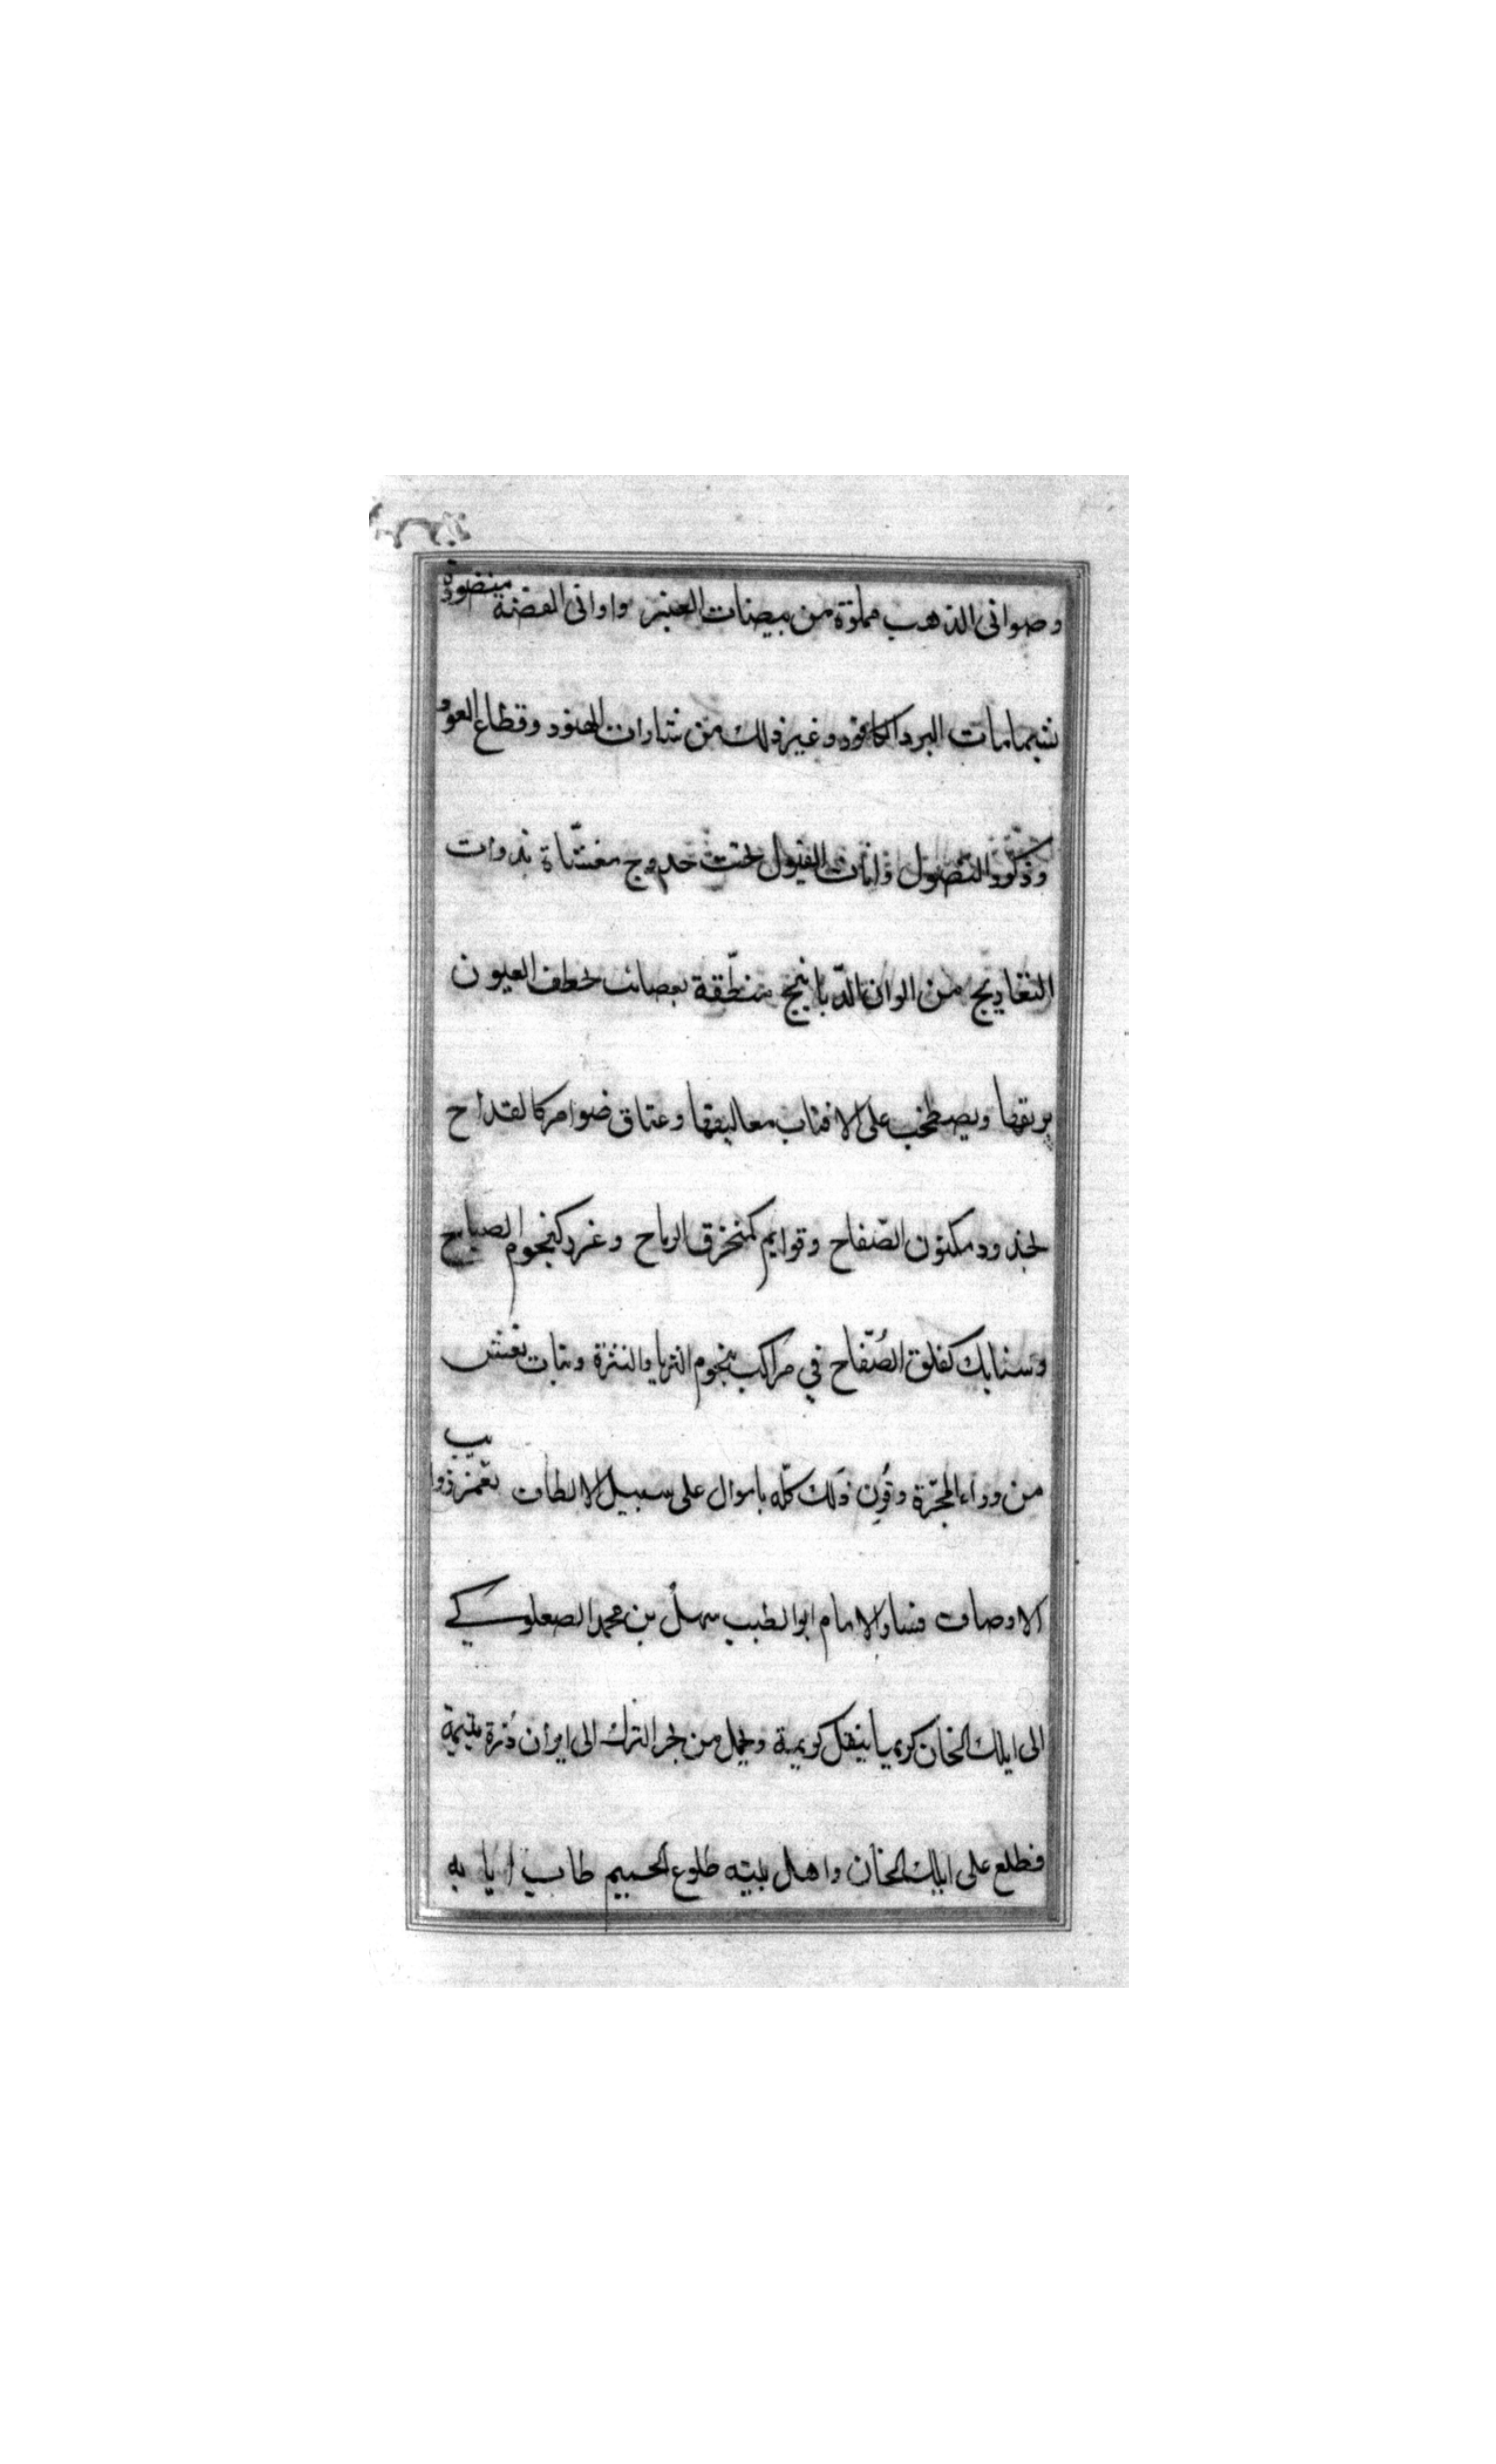 وصوانى الذهب مملوّة من بيضات العنبر واوانى الفضة منضودة
بشمامات البرد الكافور وغير ذلك من شارات الهنود وقطاع العود
وذكور النصول واناث الفيول تحت حدوج مغشاة بذوات
التغاريج من الوان الدّبابيج منطّقة بعصائب تخطف العيون
بريقها ويصطخب على الاقتاب معاليقها وعتاق ضوامر كالقداح
لخدود مكنون الصّفاح وقوايم كمنخرق الرياح وغرر كنجوم الصباح
وسنابك كفلق الصُفّاح في مراكب بنجوم الثريا والنثرة وبنات نعش
من وراء المجرّة وقُرِن ذلك كلّه باموال على سبيل الالطاف تعمّ ذوايب
الاوصاف فسار الامام ابو الطيب سهل بن محمد الصعلوكي
الى ايلك الخان كريما ينقل كريمة ويحمل من بحر الترك الى ايران دُرة يتيمة
فطلع على ايلك الخان واهل بيته طلوع الحميم طاب ايابه